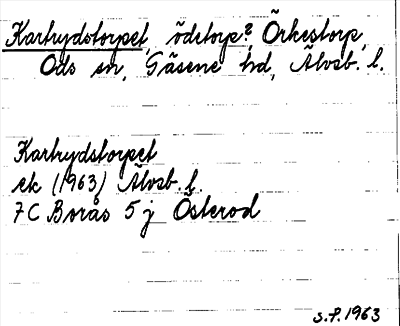 Kartrydstorpet, ödetorp?, Örkestorp,
Ods sn, Gäsene hd, Älvsb. l.
Kartrydstorpet
ek (1963) Älvsb. l.
7C Borås 5 j Österod
S.F. 1963